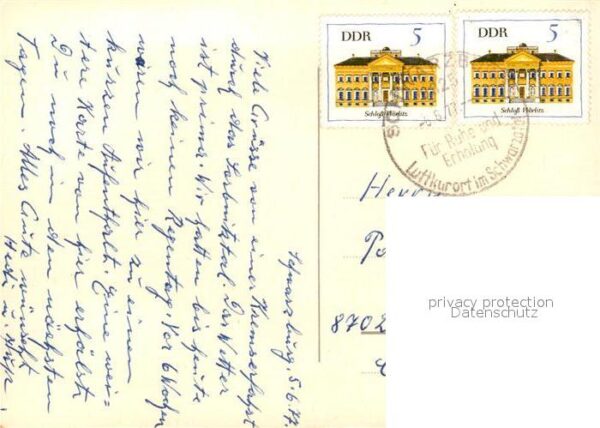 DDR 5
Schloß Wörlitz
DDR 5
Schloß Wörlitz
Für Ruhe und
Erholung
Luftkurort im Schwarzatal
Schwarzburg, 5.6.77.
Viele Grüsse von einer Kremserfahrt
durch das
Das Wetter
ist prima. Wir hatten bis heute
noch keinen Regentag. Vor 6 Wochen
waren wir hier zu einem
kurzen Aufenthalt. Eine wei-
tere Karte von hier erhälst
Du noch in den nächsten
Tagen. Alles Gute wünscht
Hedi u.
Herrn
8702
privacy protection
Datenschutz